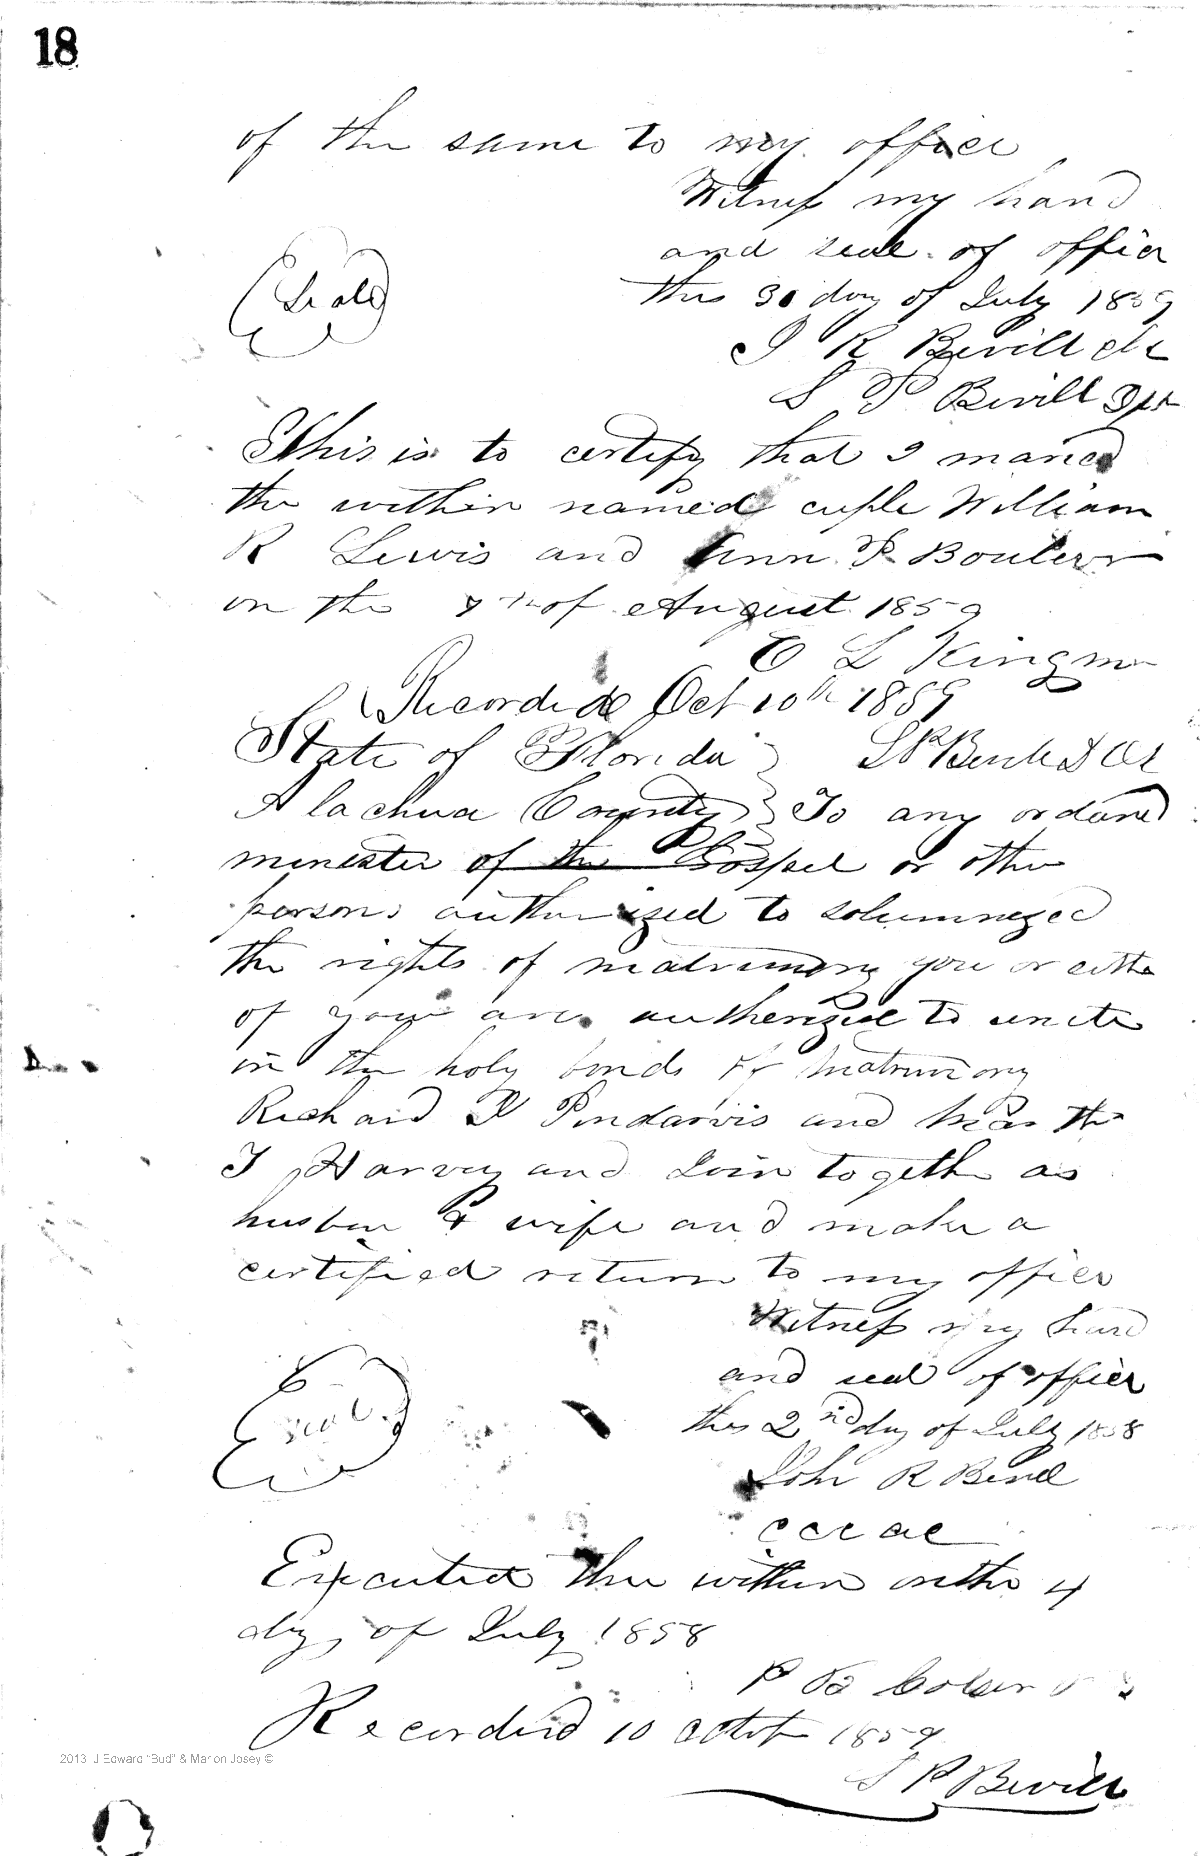 18
of the same to my office
Witness my hand
and seal of office
Seal
this 30 day of July 1859
J R Bevill Clk
S P Bevill Dpt
This is to certify that I maried
the within named cuple William
R Lewis and Ann
on the of August 1859
C L Kingm
Recorded Oct 10th 1859
State of Florida S P Bevill D Clk
Alachua County To any ordaned
minester of the Gospel or other
persons authorized to solumnezed
the rights of matrimony you or eithe
of you are autherized to unite
in the holy bonds of Matrimony
Richard Pindarvis and Marth
T Harvey and Join togeth as
husban & wife and make a
certified return to my office
Witness my hand
and seal of office
Seal
this 2nd day of July 1858
John R Bevil
ccc ac
Executed the within on the 4
day of July 1858
P B
Recorded 10 octob 1859
2013 J Edward "Bud" & Marion Josey ©
S P Bevill